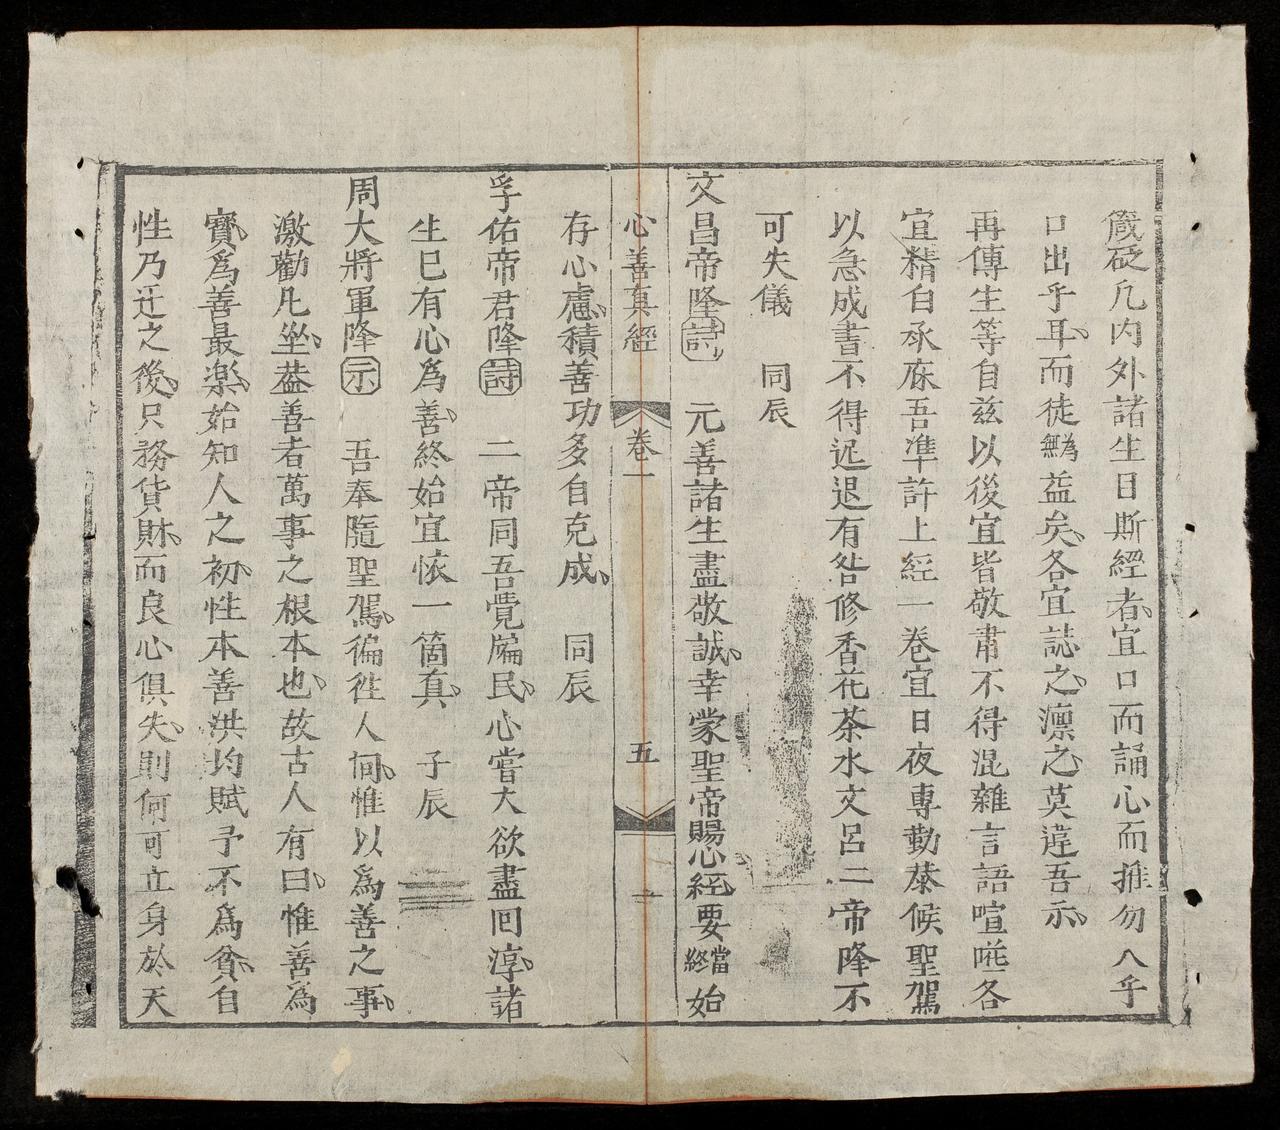 箴砭凡內外諸生日斯經者宜口而誦心而推勿入乎
口出乎耳而徒爲無益矣各宜誌之凛之莫違吾示
再傳生等自玆以後宜皆敬肅不得混雜言語喧㖃各
宜精白承庥吾準許上經一卷宜日夜專勤恭候聖駕
以急成書不得迟退有咎修香花茶水文呂二帝降不
可失儀 同辰
文昌帝降詩 元善諸生盡敬誠幸蒙聖帝賜心經要當終始
心善真經 卷一 五
存心慮積善功多自克成 同辰
孚佑帝君降詩 二帝同吾覺牖民心嘗大欲盡回淳諸
生巳有心爲善終始宜恢一箇真 子辰
周大將軍降示 吾奉隨聖駕徧徃人间惟以爲善之事
激勸凡坐葢善者萬事之根本也故古人有曰惟善爲
寶爲善最楽始知人之初性本善洪均賦予不爲貧自
性乃迁之後只務貨財而良心俱失則何可立身於天